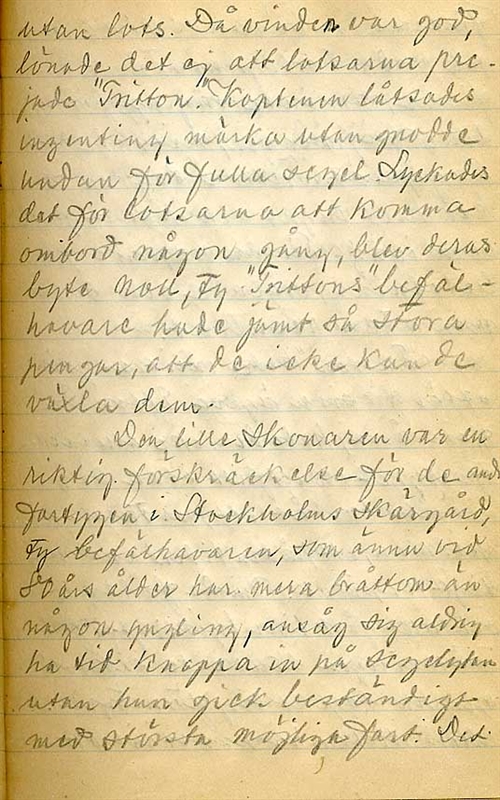 utan lots. Då vinden var god,
lönade det ej att lotsarna pre-
jade "Tritton". Kaptenen låtsades
ingenting märka utan gnodde
undan för fulla segel. Lyckades
det för lotsarna att komma
ombord någon gång, blev deras
byte noll, ty "Trittons" befäl-
havare hade jämt så stora
pengar, att de icke kunde
växla dem.
Den lille skonaren var en
riktig förskräckelse för de andr
fartygen i Stockholms skärgård,
ty befälhavaren, som ännu vid
80 års ålder har mera bråttom än
någon yngling, ansåg sig aldrig
ha tid knappa in på segelytan
utan han gick beständigt
med största möjliga fart. Det